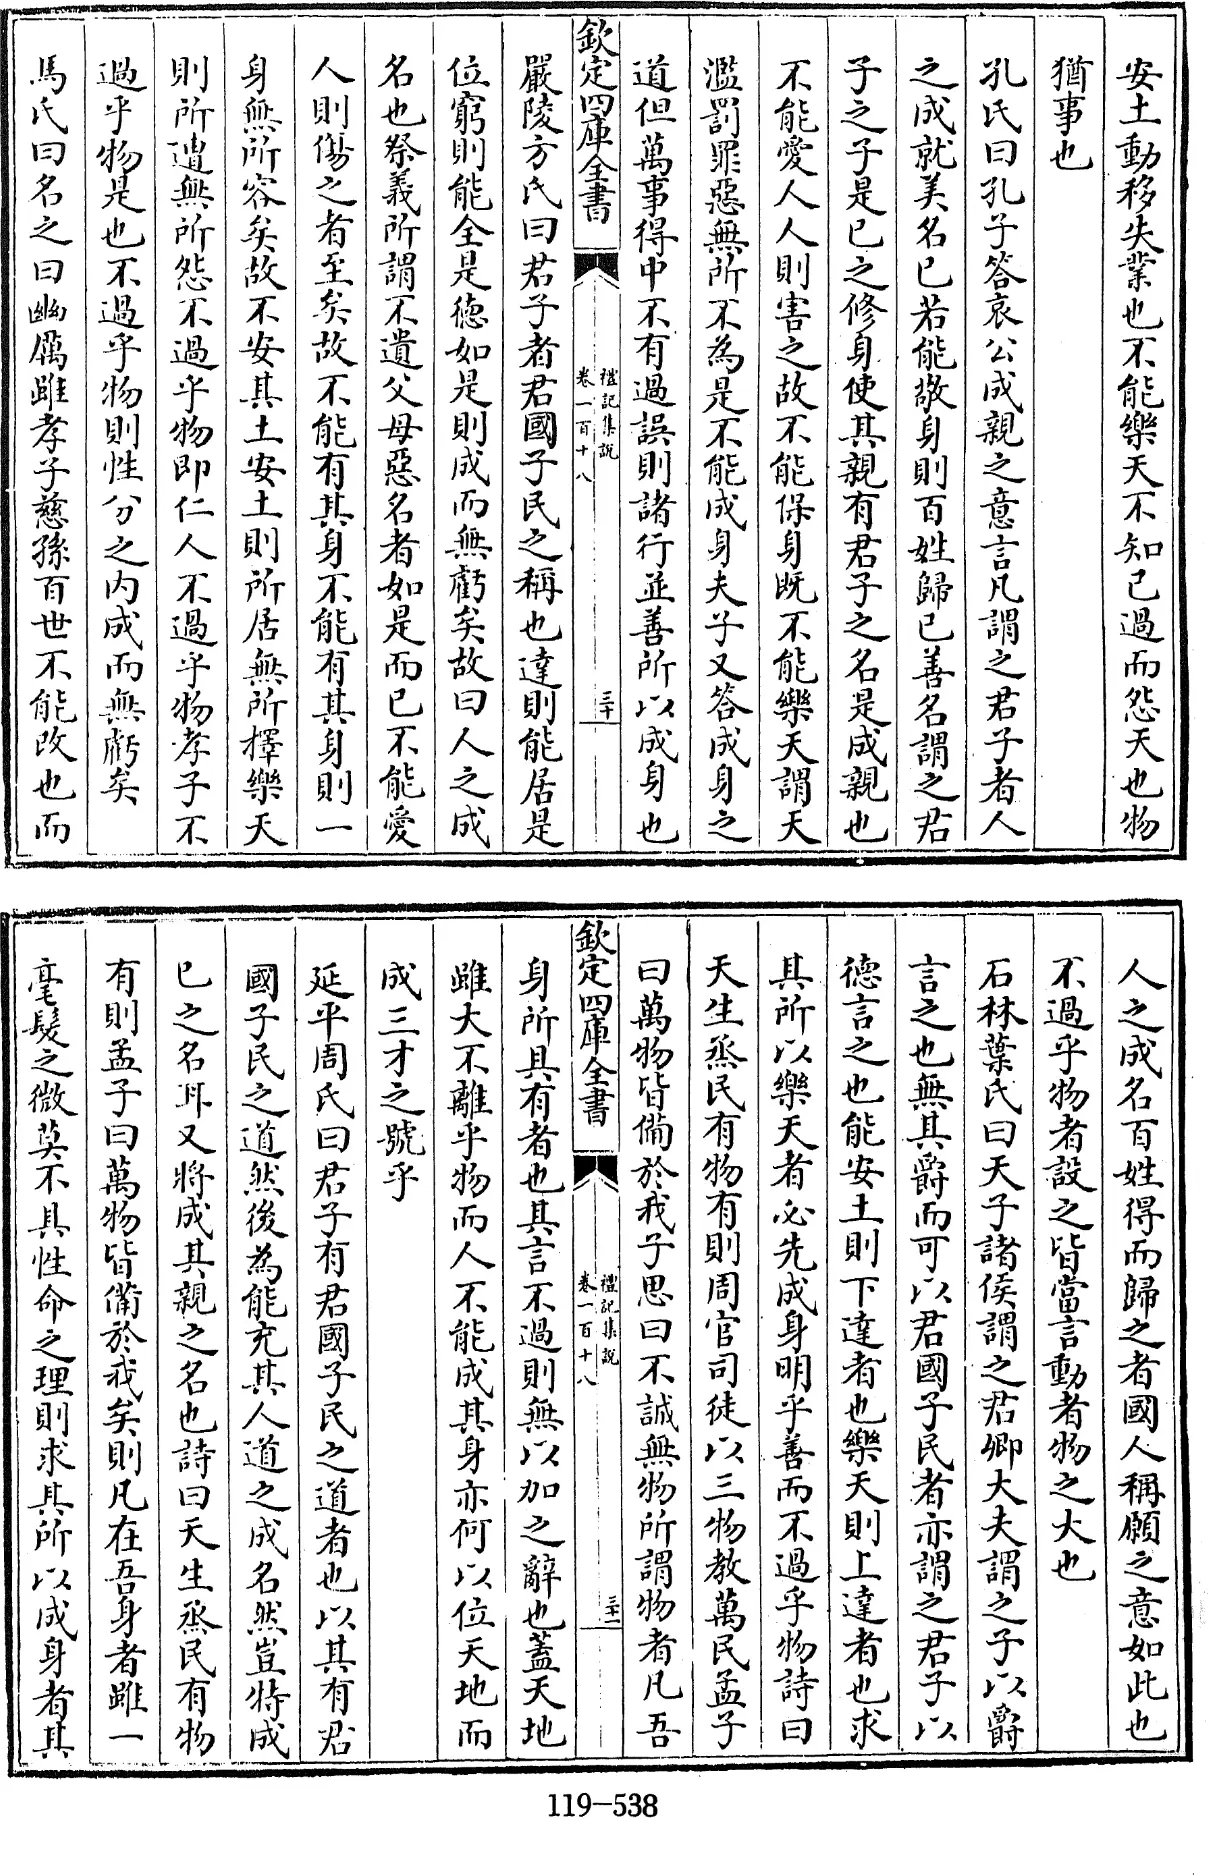 安土動移失業也不能樂天不知己過而怨天也物
猶事也
孔氏曰孔子答哀公成親之意言凡謂之君子者人
之成就美名已若能敬身則百姓歸已善名謂之君
子之子是已之修身使其親有君子之名是成親也
不能愛人人則害之故不能保身既不能樂天謂天
濫罰罪惡無所不為是不能成身夫子又答成身之
道但萬事得中不有過誤則諸行並善所以成身也
欽定四庫全書
禮記集説
卷一百十八
三十
嚴陵方氏曰君子者君國子民之稱也達則能居是
位窮則能全是德如是則成而無虧矣故曰人之成
名也祭義所謂不遺父母惡名者如是而已不能愛
人則傷之者至矣故不能有其身不能有其身則一
身無所容矣故不安其土安土則所居無所擇樂天
則所遭無所怨不過乎物即仁人不過乎物孝子不
過乎物是也不過乎物則性分之内成而無虧矣
馬氏曰名之曰幽厲雖孝子慈孫百世不能改也而
人之成名百姓得而歸之者國人稱願之意如此也
不過乎物者設之皆當言動者物之大也
石林葉氏曰天子諸侯謂之君卿大夫謂之子以爵
言之也無其爵而可以君國子民者亦謂之君子以
德言之也能安土則下達者也樂天則上達者也求
其所以樂天者必先成身明乎善而不過乎物詩曰
天生烝民有物有則周官司徒以三物教萬民孟子
曰萬物皆備於我子思曰不誠無物所謂物者凡吾
欽定四庫全書
禮記集説
卷一百十八
三十一
身所具有者也其言不過則無以加之辭也蓋天地
雖大不離乎物而人不能成其身亦何以位天地而
成三才之號乎
延平周氏曰君子有君國子民之道者也以其有君
國子民之道然後為能充其人道之成名然豈特成
已之名耳又將成其親之名也詩曰天生烝民有物
有則孟子曰萬物皆備於我矣則凡在吾身者雖一
毫髮之微莫不具性命之理則求其所以成身者其
119-538